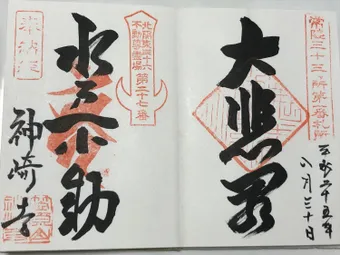 常陸三十三ヶ所第一番札所
大悲閣
平成二十五年
八月三十日
北関東三十六
不動尊霊場
第二十七番
水戸不動
神崎寺